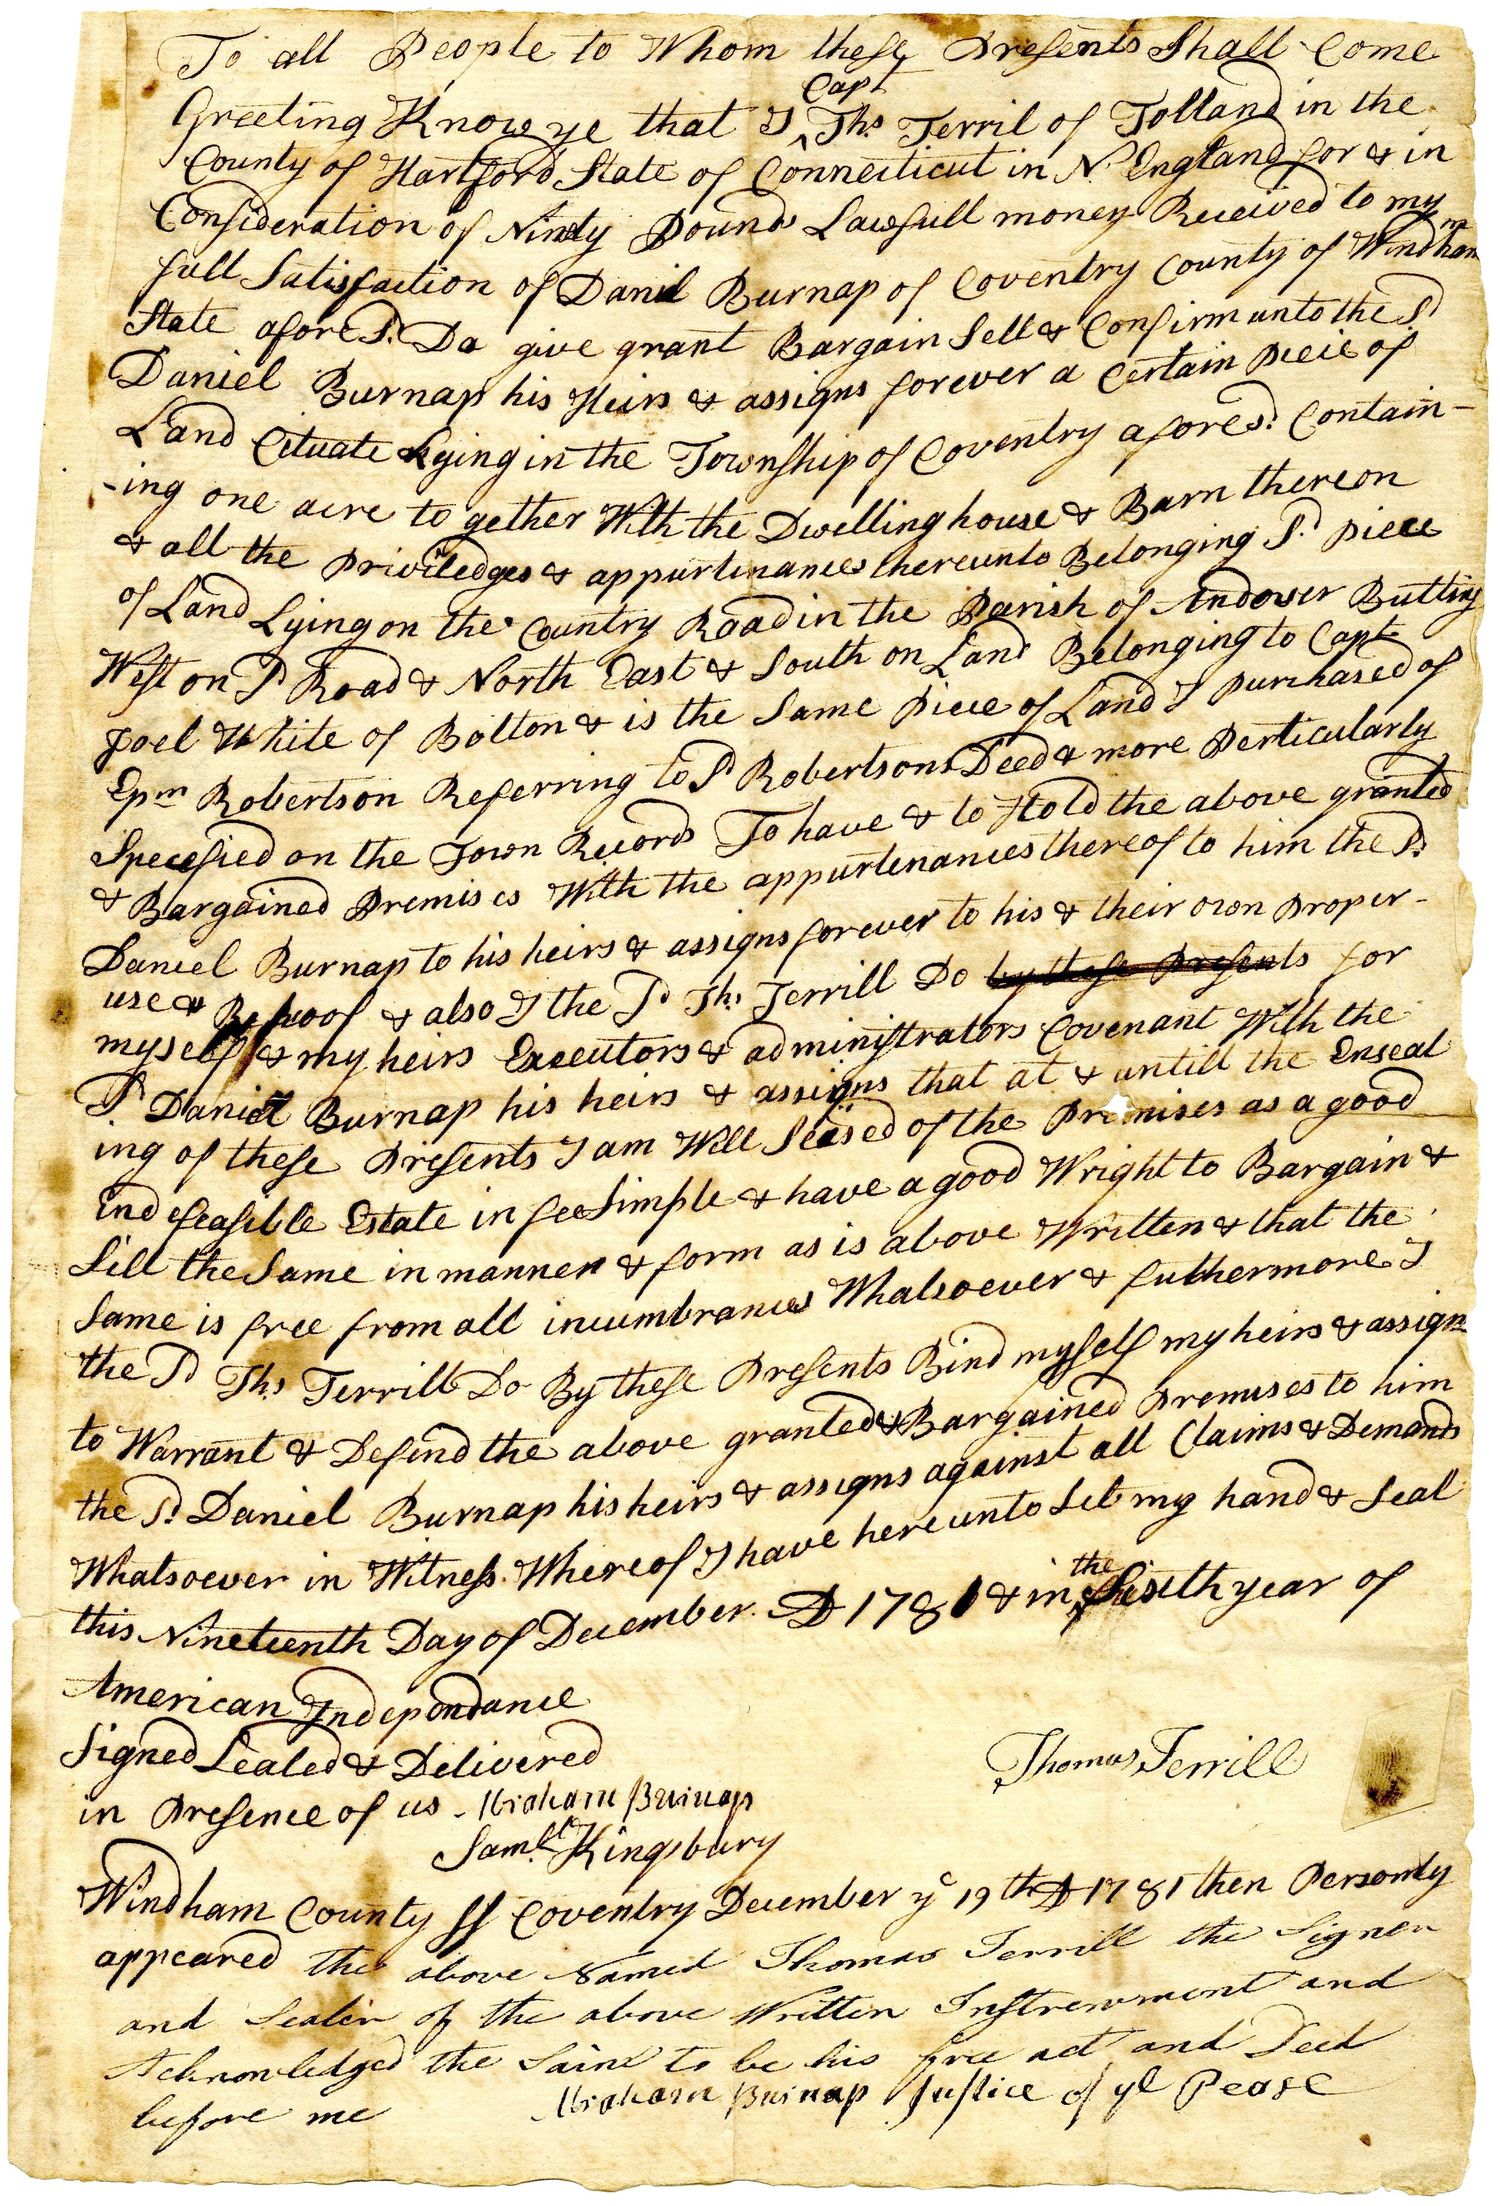 To all People to Whom these Presents Shall Come
Greeting Know ye that I Capt Ths Terril of Tolland in the
County of Hartford State of Connecticut in N. England for & in
Consideration of Ninty Pounds Lawfull money Received to my
full Satisfaction of Daniel Burnap of Coventry County of Windham
State afores.d Do give grant Bargain Sell & Confirm unto the S.d
Daniel Burnap his Heirs & assigns forever a Certain Peice of
Land Cituate Lying in the Township of Coventry afores.d Contain-
-ing one acre to gether With the Dwelling house & Barn thereon
& all the Priviledges & appurtinances thereunto Belonging S.d Piece
of Land Lying on the Country Road in the Parish of Andover Butting
West on Sd Road & North East & South on Land Belonging to Capt
Joel White of Bolton & is the Same Piece of Land I Purchased of
Epm Robertson Referring to Sd Robertsons Deed & more Perticularly
Specefied on the Town Records To have & to Hold the above granted
& Bargained Premises With the appurtenances thereof to him the S.d
Daniel Burnap to his heirs & assigns forever to his & their own Proper-
use & Behoof & also I the Sd Ths Terrill Do by these Presents for
myself & my heirs Executors & administrators Covenant With the
Sd Daniel Burnap his heirs & assigns that at & untill the Enseal
ing of these Presents I am Well Seised of the Premises as a good
Indefeasible Estate in fee Simple & have a good Wright to Bargain &
Sell the Same in manner & form as is above Written & that the
Same is free from all incumbrances Whatsoever & futhermore I
the Sd Ths Terrill Do By these Presents Bind myself my heirs & assigns
to Warrant & Defend the above granted & Bargained Premises to him
the Sd Daniel Burnap his heirs & assigns against all Claims & Demands
Whatsoever in Witness Whereof I have hereunto Set my hand & Seal
this Nineteenth Day of December AD 1781 & in the Sixth year of
American Independance
Signed Sealed & Delivered
Thomas Terrill
in Presence of us Abraham Burnap
Saml Kingsbury
Windham County ss Coventry December ye 19th AD 1781 then Personly
appeared the above Named Thomas Terrill the Signer
and Sealer of the above Written Instrewment and
Acknowledged the Same to be his free act and Deed
before me Abraham Burnap Justice of ye Pease